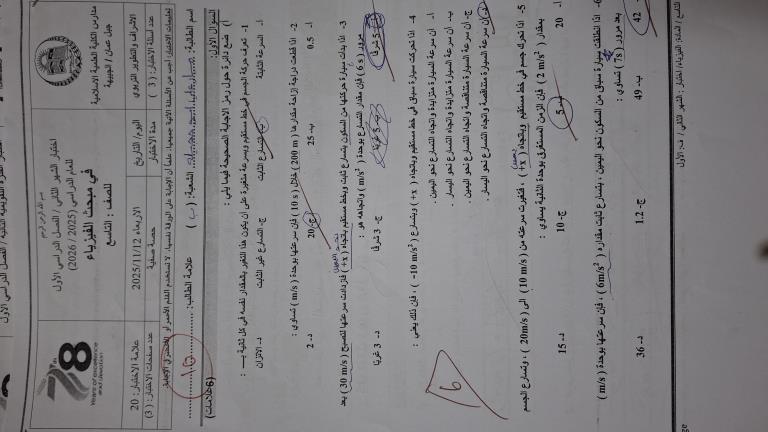 مدارس الكلية العلمية الاسلامية
جبل عمان / الجبيهة
بسم الله الرحمن الرحيم
اختبار الشهر الثاني / الفصل الدراسي الأول
للعام الدراسي (2025 / 2026)
في مبحث الفيزياء
للصف : التاسع
78
Years of excellence
and devotion
الاشراف والتطوير التربوي
اليوم/ التاريخ
الاربعاء 2025/11/12
علامة الاختبار: 20
عدد اسئلة الاختبار: ( 3 )
مدة الاختبار
حصة صفية
عدد صفحات الاختبار: (3)
اسم الطالب:
الشعبة: ( ب )
علامة الطالب:
16
السؤال الأول:
(6علامات)
ضع دائرة حول رمز الاجابة الصحيحة فيما يلي :
1- تعرف حركة الجسم في خط مستقيم وبسرعة متغيرة على أن يكون هذا التغير بالمقدار نفسه في كل ثانية بـ :
أ- السرعة الثابتة
ب- التسارع الثابت
ج- التسارع غير الثابت
د- الاتزان
2- اذا قطعت دراجة إزاحة مقدارها (200 m) خلال (10 s) فإن سرعتها بوحدة (m/s) تساوي :
أ- 0.5
ب- 25
ج- 20
د- 2
3- اذا بدأت سيارة حركتها من السكون بتسارع ثابت وبخط مستقيم باتجاه (+x) فازدادت سرعتها لتصبح (30 m/s) بعد
مرور (6 s) فإن مقدار التسارع بوحدة (m/s²) واتجاهه هو :
أ- 5 شرقا
ب- 5 غربا
ج- 3 شرقا
د- 3 غربا
4- اذا تحركت سيارة سباق في خط مستقيم وباتجاه (+x) وبتسارع (-10 m/s²) ، فإن ذلك يعني :
أ- ان سرعة السيارة متزايدة واتجاه التسارع نحو اليمين .
ب- ان سرعة السيارة متزايدة واتجاه التسارع نحو اليسار .
ج- ان سرعة السيارة متناقصة واتجاه التسارع نحو اليمين .
د- ان سرعة السيارة متناقصة واتجاه التسارع نحو اليسار .
6
5- اذا تحرك جسم في خط مستقيم وباتجاه (+x) ، فتغيرت سرعته من (10 m/s) الى (20m/s) ، وتسارع الجسم
بمقدار (2 m/s²) فإن الزمن المستغرق بوحدة الثانية يساوي :
أ- 20
ب- 5
ج- 10
د- 15
6- اذا انطلقت سيارة سباق من السكون نحو اليمين ، بتسارع ثابت مقداره (6m/s²) ، فإن سرعتها بوحدة (m/s)
بعد مرور (7s) تساوي :
42
ب- 49
ج- 1.2
د- 36